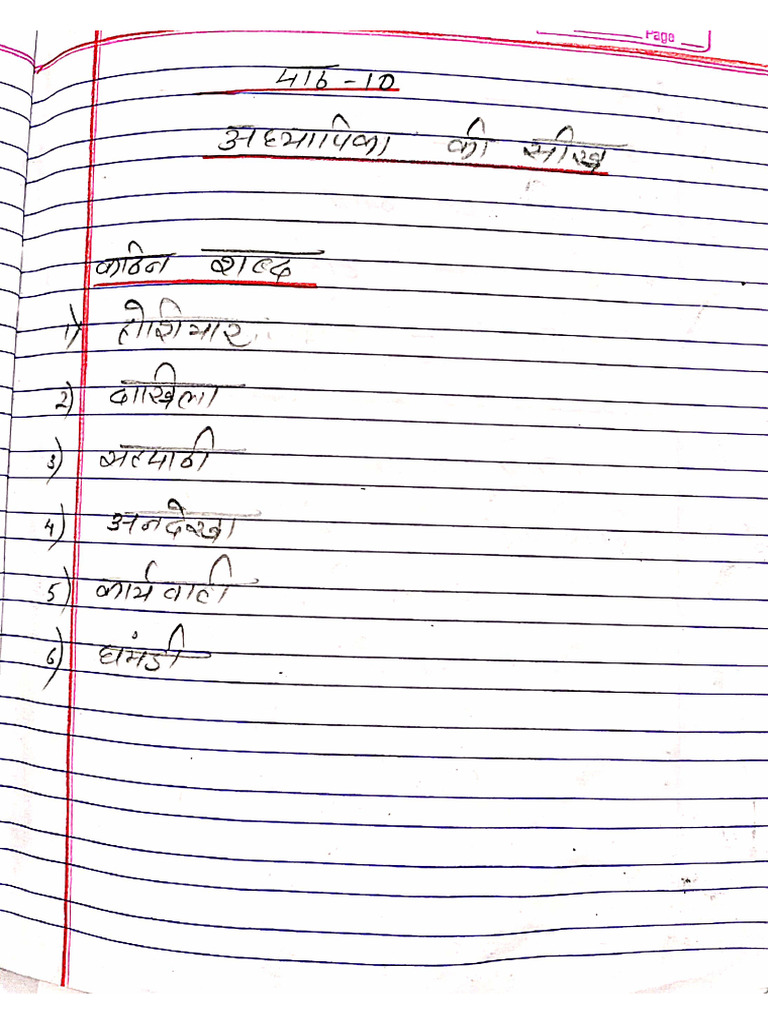 Page
पाठ - 10
अध्यापिका की सीख
कठिन शब्द
1) होशियार
2) दाखिला
3) सहपाठी
4) अनदेखा
5) कार्यवाही
6) घमंडी